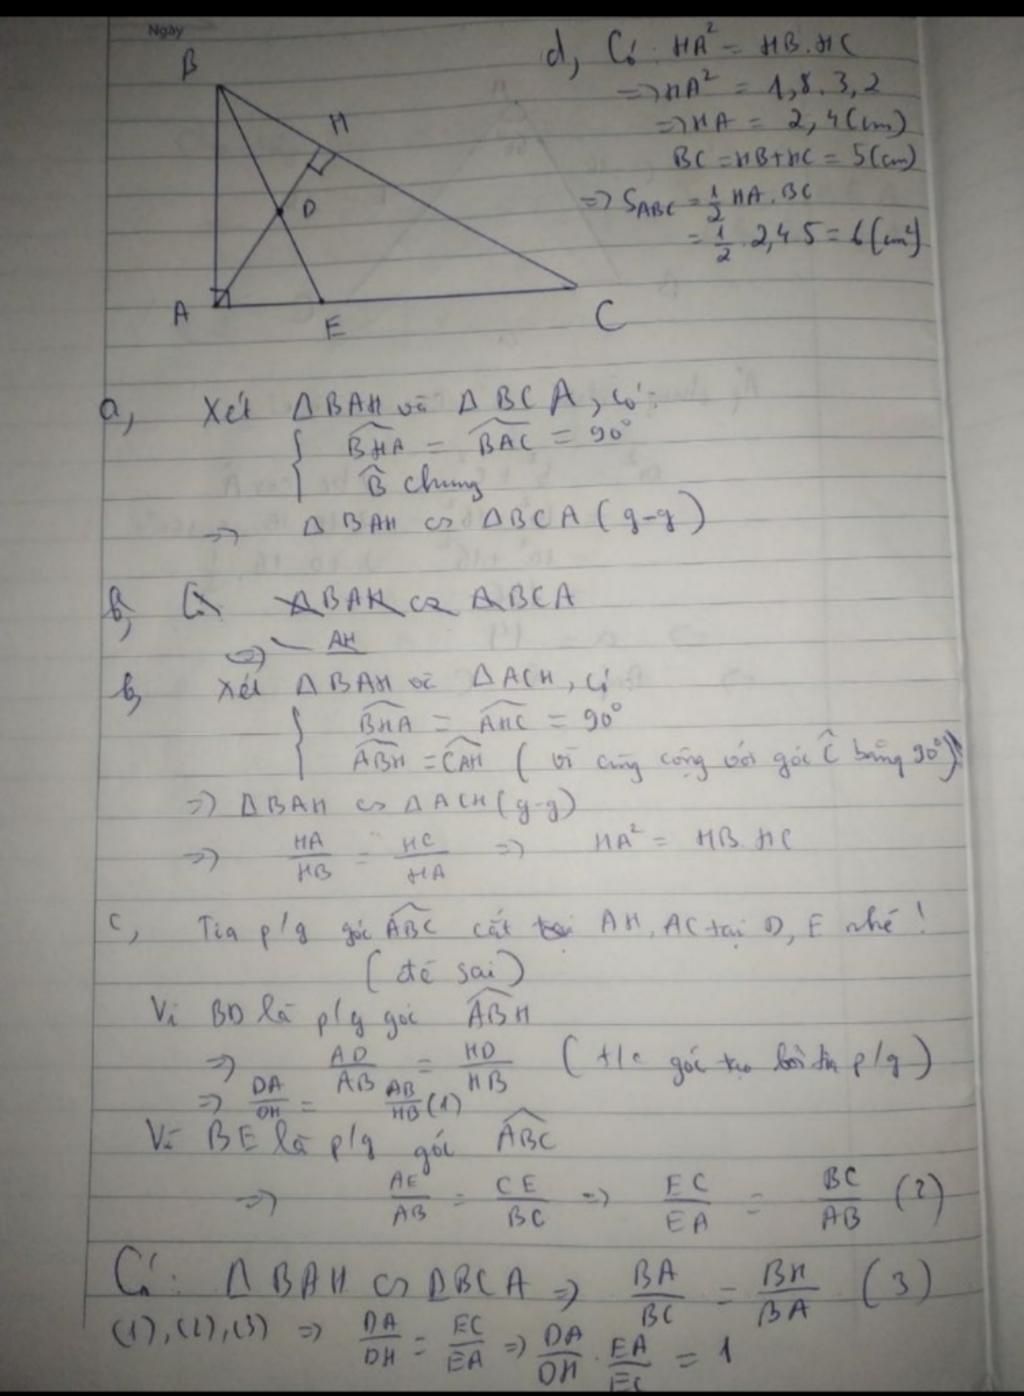 Ngày
B
H
D
A
E
C
d, Có: HA² = HB.HC
=> HA² = 1,8.3,2
=> HA = 2,4(cm)
BC = HB+HC = 5(cm)
=> S_ABC = 1/2 HA.BC
= 1/2 . 2,4 5 = 6(cm²)
a, Xét ΔBAH và ΔBCA, có:
{ \widehat{BHA} = \widehat{BAC} = 90°
\widehat{B} chung
=> ΔBAH ∽ ΔBCA (g-g)
b, Có ΔBAH ∽ ΔBCA
=> AH
b, Xét ΔBAH và ΔACH, có
{ \widehat{BHA} = \widehat{AHC} = 90°
\widehat{ABH} = \widehat{CAH} (vì cùng cộng với góc \widehat{C} bằng 90°)
=> ΔBAH ∽ ΔACH (g-g)
=> HA/HB = HC/HA => HA² = HB.HC
c, Tia p/g góc \widehat{ABC} cắt AH, AC tại D, E nhé!
(đề sai)
Vì BD là p/g góc \widehat{ABH}
=> AD/AB = HD/HB (t/c góc tạo bởi tia p/g)
=> DA/DH = AB/HB (1)
Vì BE là p/g góc \widehat{ABC}
=> AE/AB = CE/BC => EC/EA = BC/AB (2)
Có: ΔBAH ∽ ΔBCA => BA/BC = BH/BA (3)
(1),(2),(3) => DA/DH = EC/EA => DA/DH . EA/EC = 1